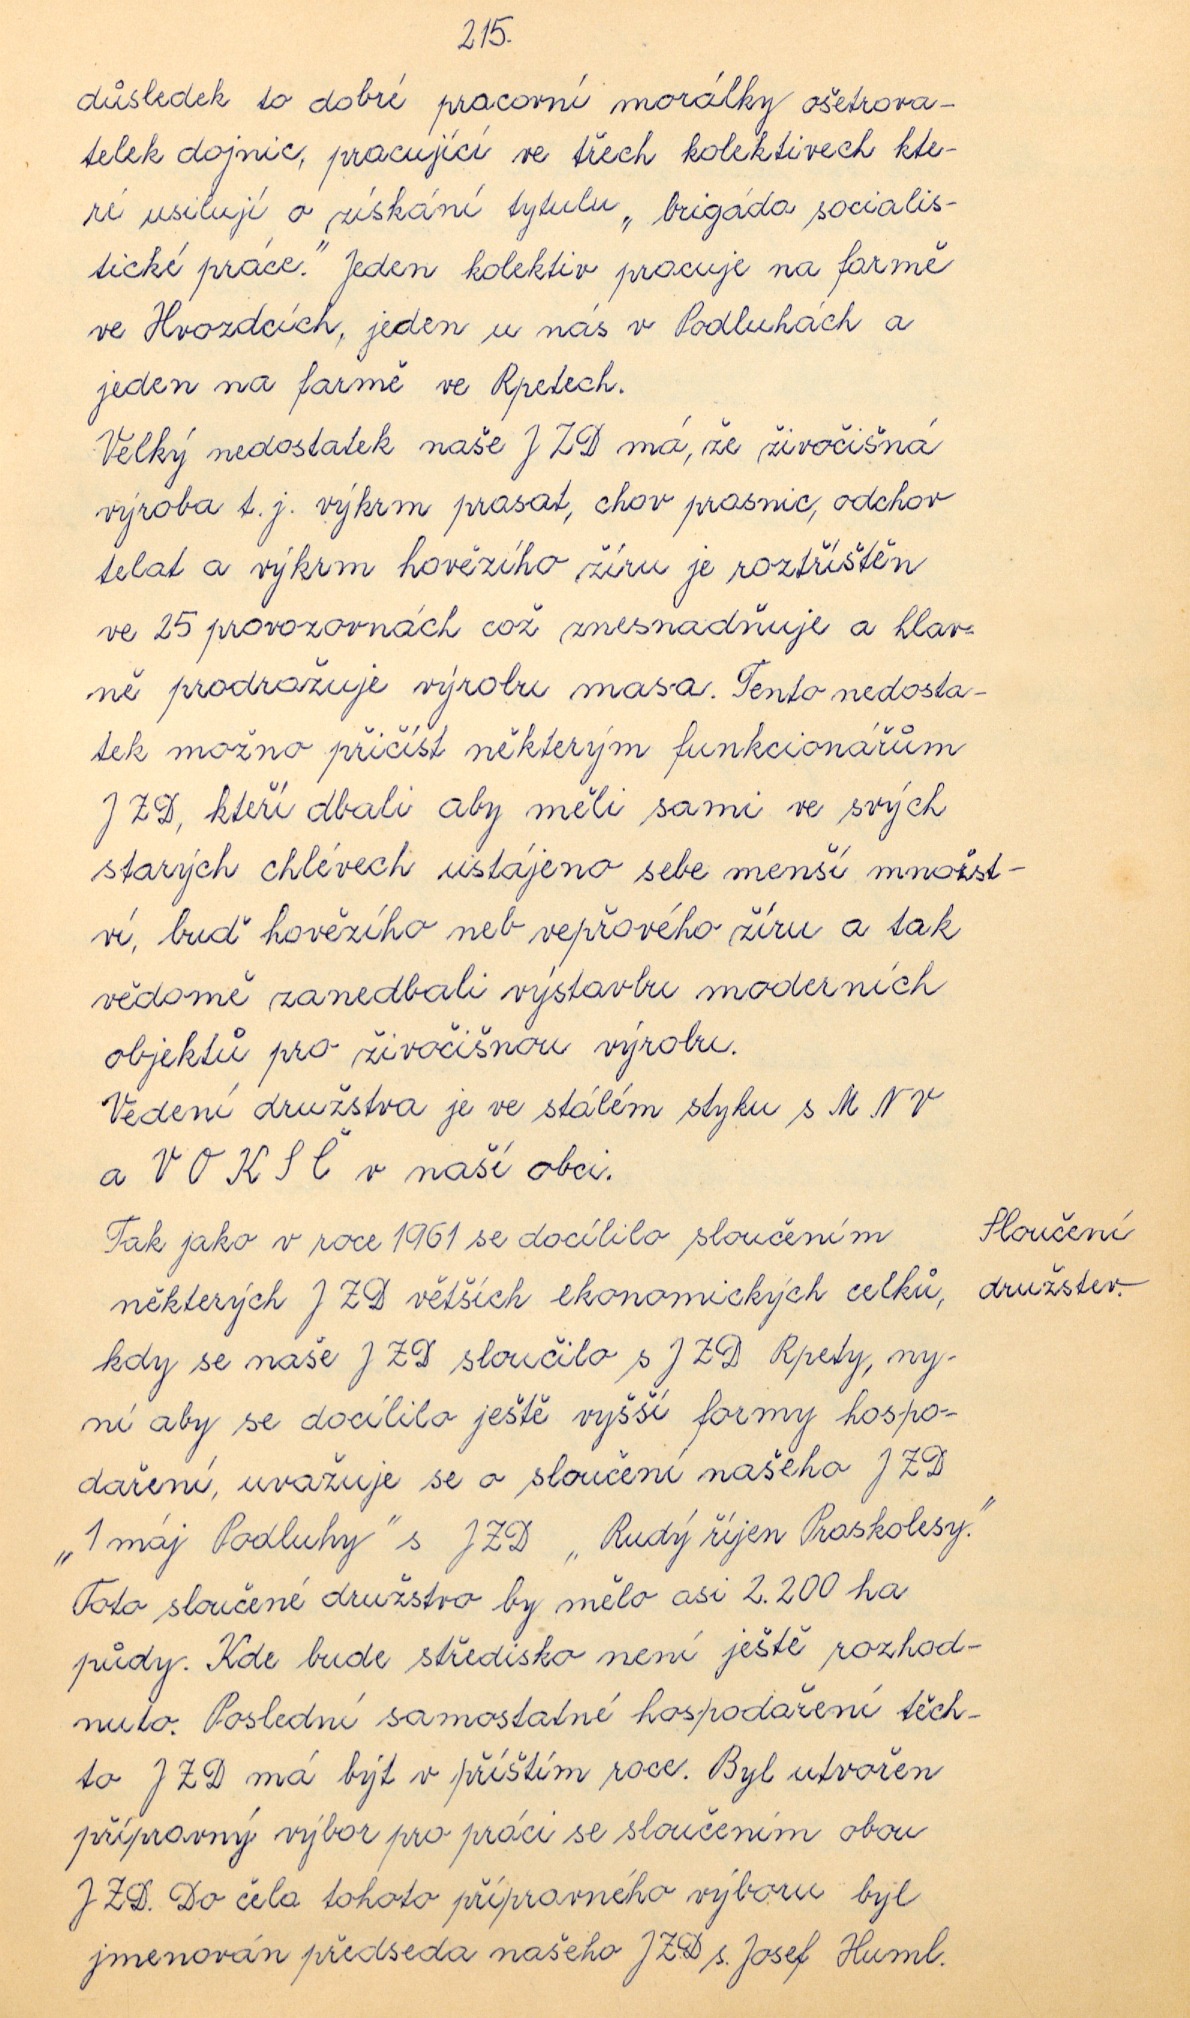 215.
důsledek to dobré pracovní morálky ošetrova-
telek dojnic, pracující ve třech kolektivech kte-
ré usilují o získání tytulu „brigáda socialis-
tické práce." Jeden kolektiv pracuje na farmě
ve Hvozdcích, jeden u nás v Podluhách a
jeden na farmě ve Rpetech.
Velký nedostatek naše JZD má, že živočišná
výroba t. j. výkrm prasat, chov prasnic, odchov
telat a výkrm hovězího žíru je roztříštěn
ve 25 provozovnách což znesnadňuje a hlav-
ně prodražuje výrobu masa. Tento nedosta-
tek možno přičíst některým funkcionářům
JZD, kteří dbali aby měli sami ve svých
starých chlévech ustájeno sebe menší množst-
ví, buď hovězího neb vepřového žíru a tak
vědomě zanedbali výstavbu moderních
objektů pro živočišnou výrobu.
Vedení družstva je ve stálém styku s MNV
a VOKSČ v naší obci.
Tak jako v roce 1961 se docílilo sloučením
Sloučení
některých JZD větších ekonomických celků,
družstev.
kdy se naše JZD sloučilo s JZD Rpety, ny-
ní aby se docílilo ještě vyšší formy hospo-
daření, uvažuje se o sloučení našeho JZD
„1 máj Podluhy" s JZD „Rudý říjen Praskolesy."
Toto sloučené družstvo by mělo asi 2.200 ha
půdy. Kde bude středisko není ještě rozhod-
nuto. Poslední samostatné hospodaření těch-
to JZD má být v příštím roce. Byl utvořen
přípravný výbor pro práci se sloučením obou
JZD. Do čela tohoto přípravného výboru byl
jmenován předseda našeho JZD s. Josef Huml.